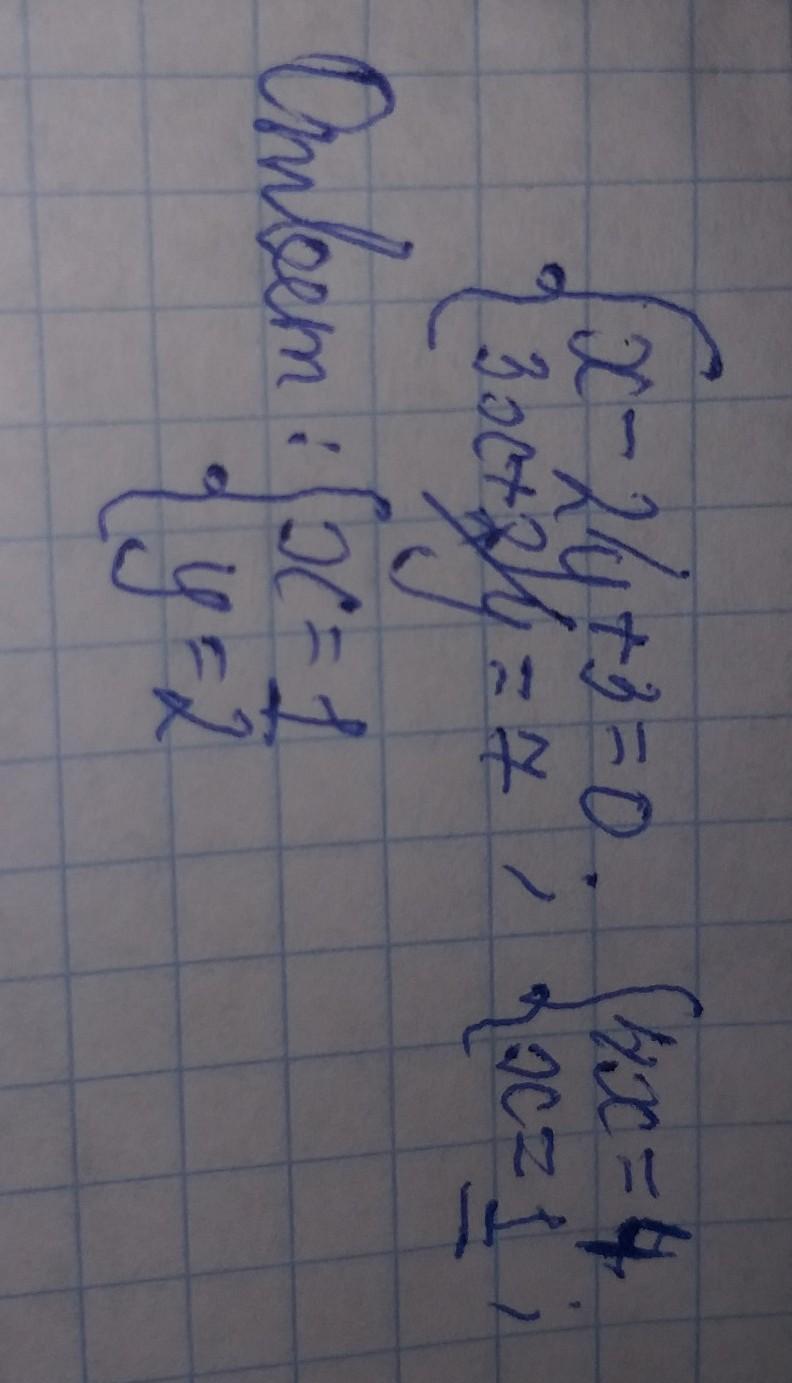 { x - 2y + 3 = 0
{ 3x + 2y = 7 ;
{ 4x = 4
{ x = 1 ;
y
Ответ : { x = 1
{ y = 2